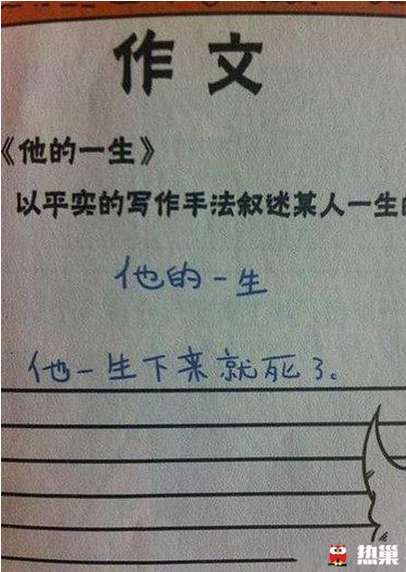 作文
《他的一生》
以平实的写作手法叙述某人一生的
他的一生
他一生下来就死了。
热巢